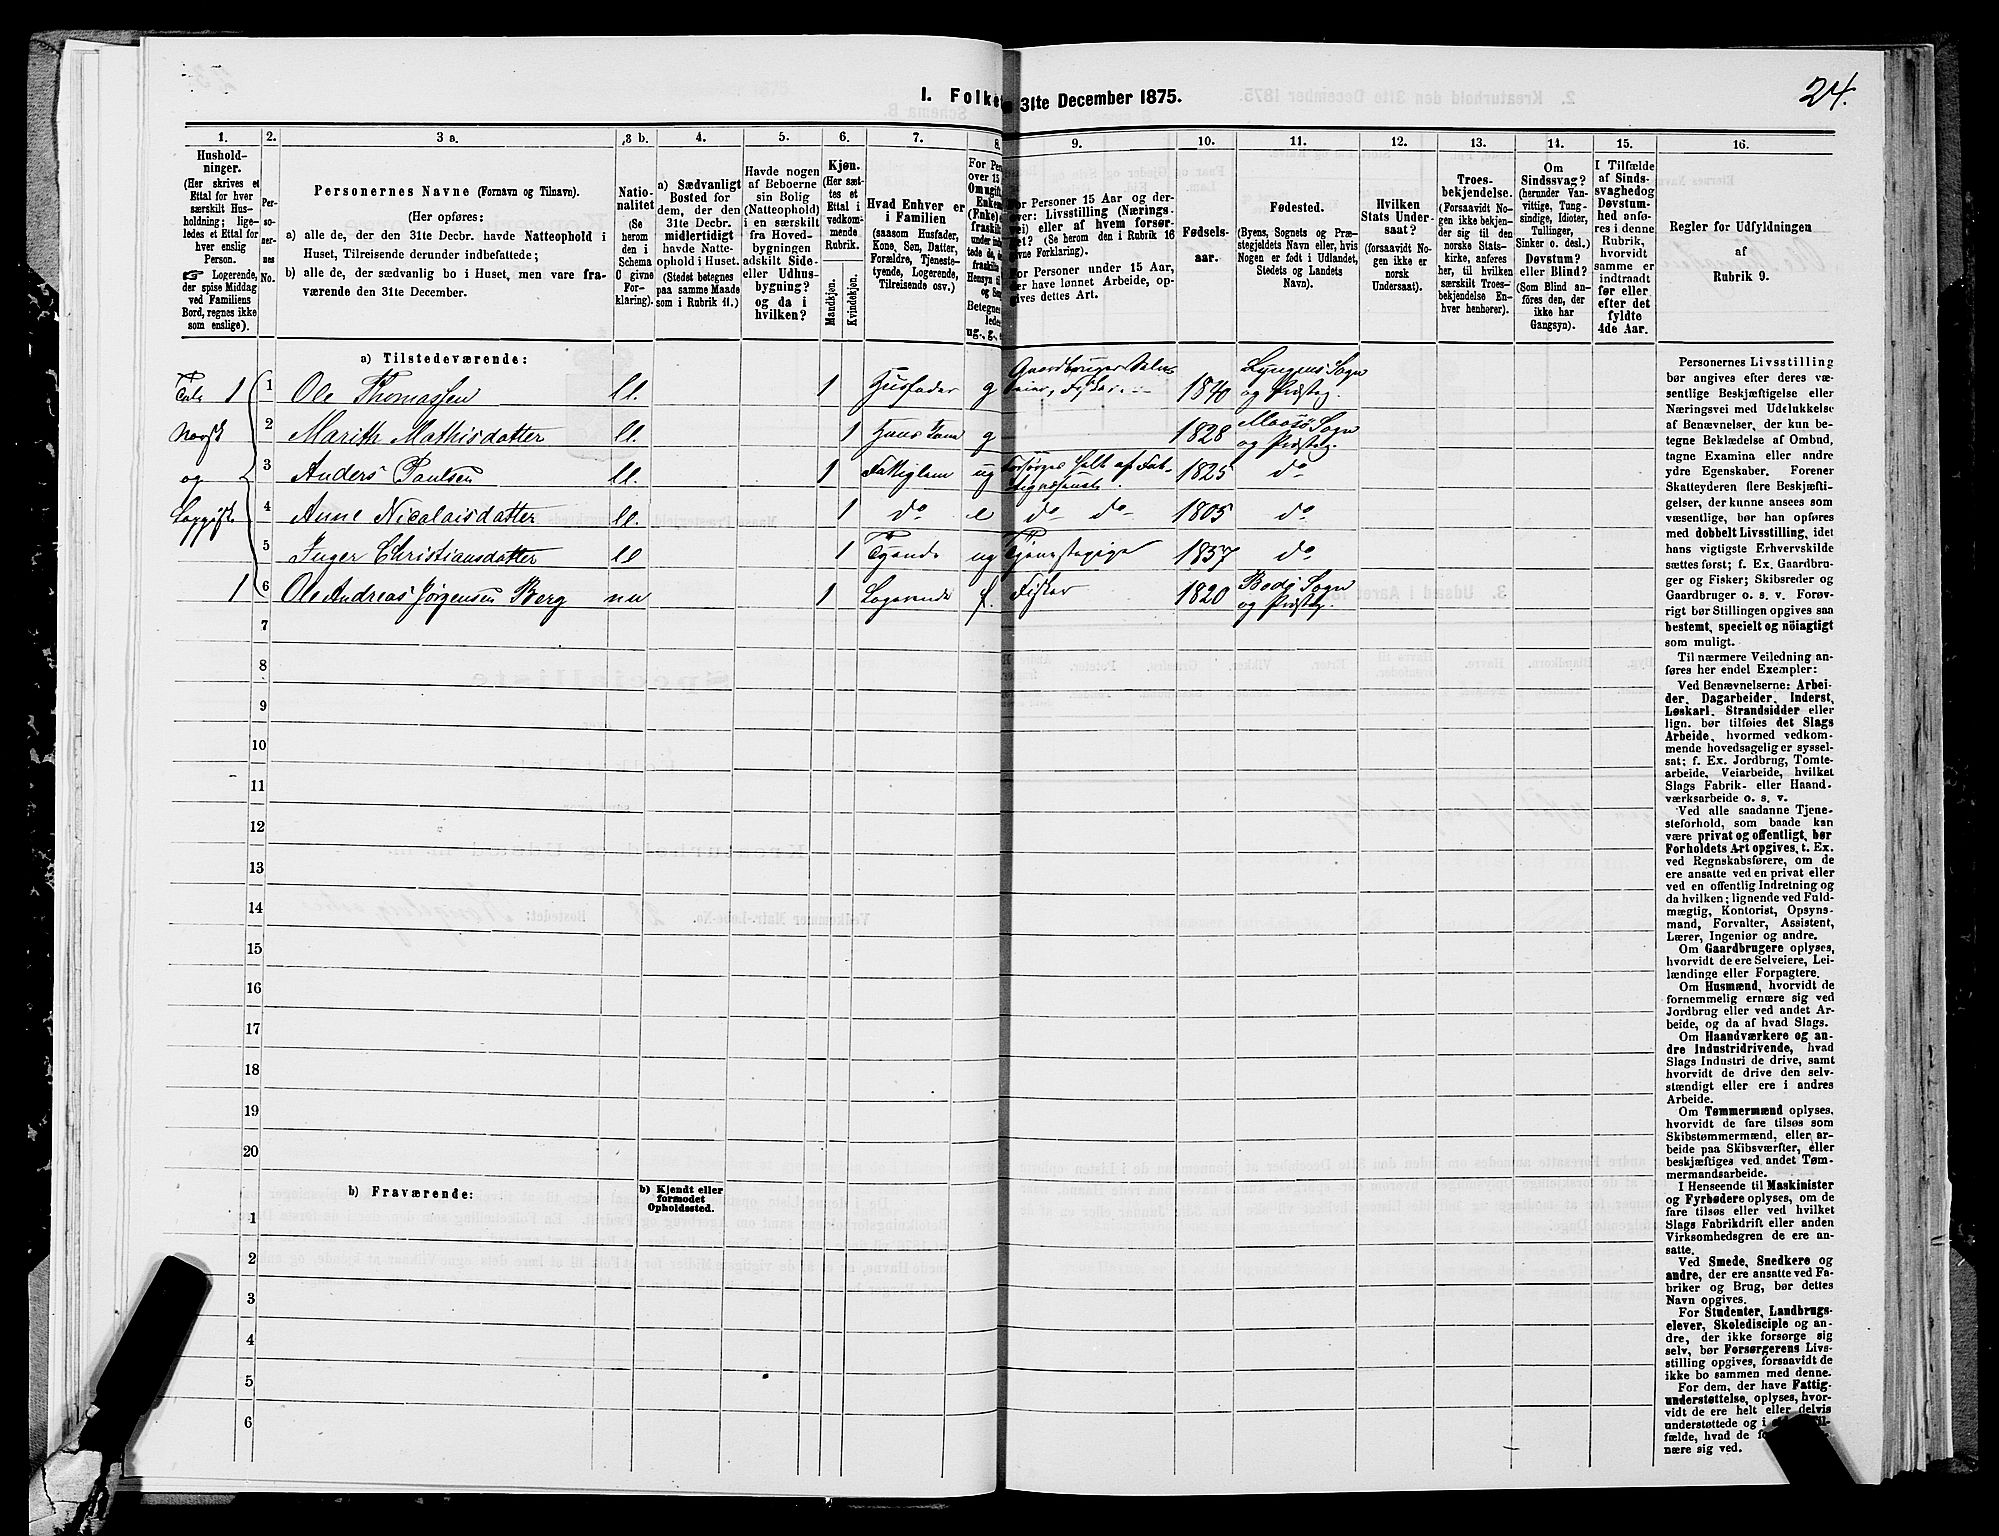 24.
I. Folke 31te December 1875.
1. 2. 3 a. 3 b. 4. 5. 6. 7. 8. 9. 10. 11. 12. 13. 14. 15. 16.
Hushold-
ninger.
(Her skrives et
Ettal for hver
særskilt Hus-
holdning; lige-
ledes et Ettal for
hver enslig
Person.
☞ Logerende,
der spise Middag
ved Familiens
Bord, regnes ikke
som enslige).
Per-
so-
ner-
nes
No.
Personernes Navne (Fornavn og Tilnavn).
(Her opføres:
a) alle de, der den 31te Decbr. havde Natteophold i
Huset, Tilreisende derunder indbefattede;
b) alle de, der sædvanlig bo i Huset, men vare fra-
værende den 31te December.
Natio-
nalitet
(Se
herom
den i
Schema
C givne
For-
klaring).
a) Sædvanligt
Bosted for
dem, der den
31te Decbr.
midlertidigt
havde Natte-
Ophold i Huset.
(Stedet betegnes
paa samme Maade
som i Rubrik 11.)
Havde nogen
af Beboerne
sin Bolig
(Natteophold)
i en særskilt
fra Hoved-
bygningen
adskilt Side-
eller Udhus-
bygning?
og da i
hvilken?
Kjøn.
(Her sæt-
tes et
Ettal i
vedkom-
mende
Rubrik.
Mandkjøn.
Kvindekjøn.
Hvad Enhver er
i Familien
(saasom Husfader,
Kone, Søn, Datter,
Forældre, Tjeneste-
tyende, Logerende,
Tilreisende osv.)
For Per
over 15
Om ugift
Enkem
(Enke)
fraskilt
Hensyn til
og
Betegnes
ledes
ug., g.,
For Personer 15 Aar og der-
over: Livsstilling (Nærings-
vei) eller af hvem forsør-
get? (Se herom den i Rubrik 16
givne Forklaring).
For Personer under 15 Aar,
der have lønnet Arbeide, op-
gives dettes Art.
Fødsels-
aar.
Fødested.
(Byens, Sognets og Præ-
stegjeldets Navn eller, hvis
Nogen er født i Udlandet,
Stedets og Landets
Navn).
Hvilken
Stats Under-
saat?
(forsaavidt No-
gen ikke er
norsk
Undersaat).
Troes-
bekjendelse.
(Forsaavidt No-
gen ikke bekjen-
der sig til den
norske Stats-
kirke, anføres
her, til hvilken
særskilt Troes-
bekjendelse En-
hver henhører).
Om
Sindssvag?
(herunder Van-
vittige, Tung-
sindige, Idioter,
Tullinger,
Sinker o. desl.)
Døvstum?
eller Blind?
(Som Blind an-
føres den, der
ikke har
Gangsyn).
I Tilfælde
af Sinds-
svaghed og
Døvstum-
hed anfø-
res i denne
Rubrik,
hvorvidt
samme er
indtraadt
før eller
efter det
fyldte
4de Aar.
Regler for Udfyldningen
af
Rubrik 9.
a) Tilstedeværende:
Tale 1 1 Ole Thomassen ll. 1 Husfader g Gaardbruger Selv-
eier, Fisker 1840 Lyngens Sogn
og Præsteg.
Norsk 2 Marith Mathisdatter ll. 1 Hans Kone g 1828 Maasø Sogn
og Præsteg.
og 3 Anders Paulsen ll. 1 Fattiglem ug Forsørges helt af Fat-
tigvæsenet. 1825 do
Lappisk 4 Anne Nicolaisdatter ll. 1 do e do do 1805 do
5 Inger Christiansdatter ll 1 Tyende ug Tjenestepige 1857 do
1 6 Ole Andreas Jørgensen Berg nn 1 Logerende f. Fisker 1820 Bodø Sogn
og Præsteg.
7
8
9
10
11
12
13
14
15
16
17
18
19
20
b) Fraværende:
b) Kjendt eller
formodet
Opholdssted.
1
2
3
4
5
6
Personernes Livsstilling
bør angives efter deres væ-
sentlige Beskjæftigelse eller
Næringsvei med Udelukkelse
af Benævnelser, der kun be-
tegne Beklædelse af Ombud,
tagne Examina eller andre
ydre Egenskaber. Forener
Skatteyderen flere Beskjæfti-
gelser, der kunne ansees som
væsentlige, bør han opføres
med dobbelt Livsstilling, idet
hans vigtigste Erhvervskilde
sættes først; f. Ex. Gaardbru-
ger og Fisker; Skibsreder og
Gaardbruger o. s. v. Forøv-
rigt bør Stillingen opgives saa
bestemt, specielt og nöiagtigt
som muligt.
Til nærmere Veiledning an-
føres her endel Exempler:
Ved Benævnelserne: Arbei-
der, Dagarbeider, Inderst,
Løskarl, Strandsidder eller
lign. bør tilføies det Slags
Arbeide, hvormed vedkom-
mende hovedsagelig er syssel-
sat; f. Ex. Jordbrug, Tomte-
arbeide, Veiarbeide, hvilket
Slags Fabrik- eller Haand
værksarbeide o. s. v.
Ved alle saadanne Tjene-
steforhold, som baade kan
være privat og offentligt, bør
Forholdets Art opgives, t. Ex.
ved Regnskabsførere, om de
ere ansatte ved en privat eller
ved en offentlig Indretning og
da hvilken; lignende ved Fuld-
mægtig, Kontorist, Opsyns-
mand, Forvalter, Assistent,
Lærer, Ingeniør og andre.
Om Gaardbrugere oplyses,
hvorvidt de ere Selveiere, Lei-
lændinge eller Forpagtere.
Om Husmænd, hvorvidt de
fornemmelig ernære sig ved
Jordbrug eller ved andet Ar-
beide, og da af hvad Slags.
Om Haandværkere og an-
dre Industridrivende, hvad
Slags Industri de drive, samt
hvorvidt de drive den selv-
stændigt eller ere i andres
Arbeide.
Om Tømmermænd oplyses,
hvorvidt de fare tilsøs som
Skibstømmermænd, eller ar-
beide paa Skibsværfter, eller
beskjæftiges ved andet Tøm-
mermandsarbeide.
I Henseende til Maskinister
og Fyrbødere oplyses, om de
fare tilsøs eller ved hvilket
Slags Fabrikdrift eller anden
Virksomhedsgren de ere an-
satte.
Ved Smede, Snedkere og
andre, der ere ansatte ved Fa-
briker og Brug, bør dettes
Navn opgives.
For Studenter, Landbrugs-
elever, Skoledisciple og an-
dre, der ikke forsørge sig
selv, bør Forsørgerens Livs-
stilling opgives, forsaavidt de
ikke bo sammen med denne.
For dem, der have Fattig-
understøttelse, oplyses, hvor-
vidt de ere helt eller delvis
understøttede og i
fælde, hvad de
nære sig ved.